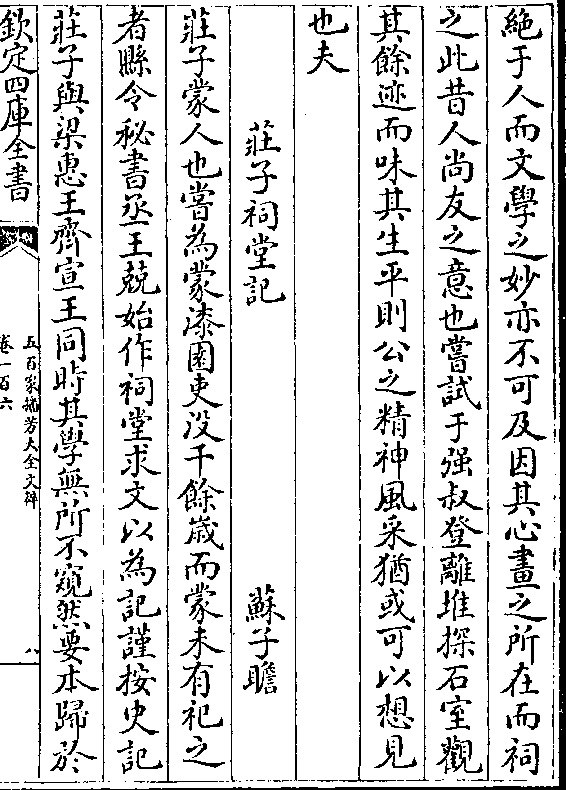 絶于人而文學之妙亦不可及因其心畫之所在而祠
之此昔人尚友之意也嘗試于强叔登離堆探石室觀
其餘迹而味其生平則公之精神風采猶或可以想見
也夫
莊子祠堂記　蘇子瞻
莊子蒙人也嘗為蒙漆園吏没千餘歳而蒙未有祀之
者縣令秘書丞王兢始作祠堂求文以為記謹按史記
莊子與梁惠王齊宣王同時其學無所不窺然要本歸於
欽定四庫全書
五百家播芳大全文粹
卷一百六
八